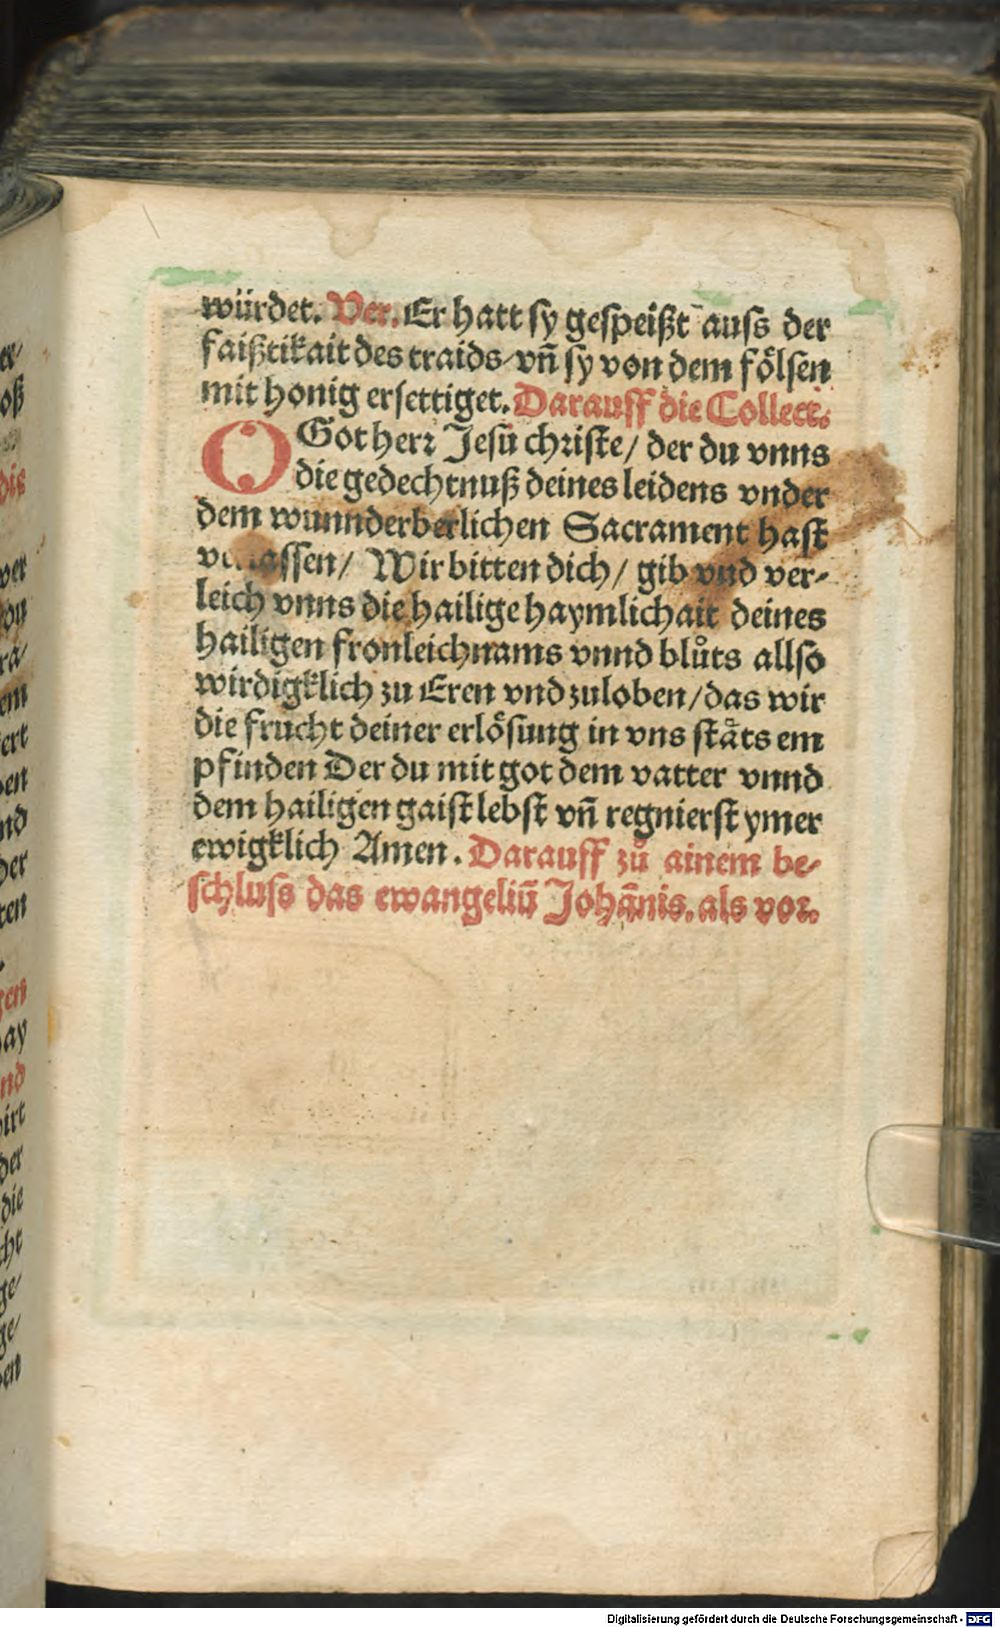 würdet. Ver. Er hatt sy gespeißt auss der
faißtikait des traids/ vñ sy von dem fölsen
mit honig ersettiget. Darauff die Collect.
O Got herr Jesü christe/ der du vnns
die gedechtnuß deines leidens vnder
dem wunnderberlichen Sacrament hast
Wir bitten dich/ gib vnd ver-
leich vnns die hailige haymlichait deines
hailigen fronleichnams vnnd blůts allso
wirdigklich zu Eren vnd zuloben/ das wir
die frucht deiner erlösung in vns stäts em
pfinden Der du mit got dem vatter vnnd
dem hailigen gaist lebst vñ regnierst ymer
ewigklich Amen. Darauff zů ainem be-
schluss das ewangeliū Johānis. als vor.
Digitalisierung gefördert durch die Deutsche Forschungsgemeinschaft - DFG